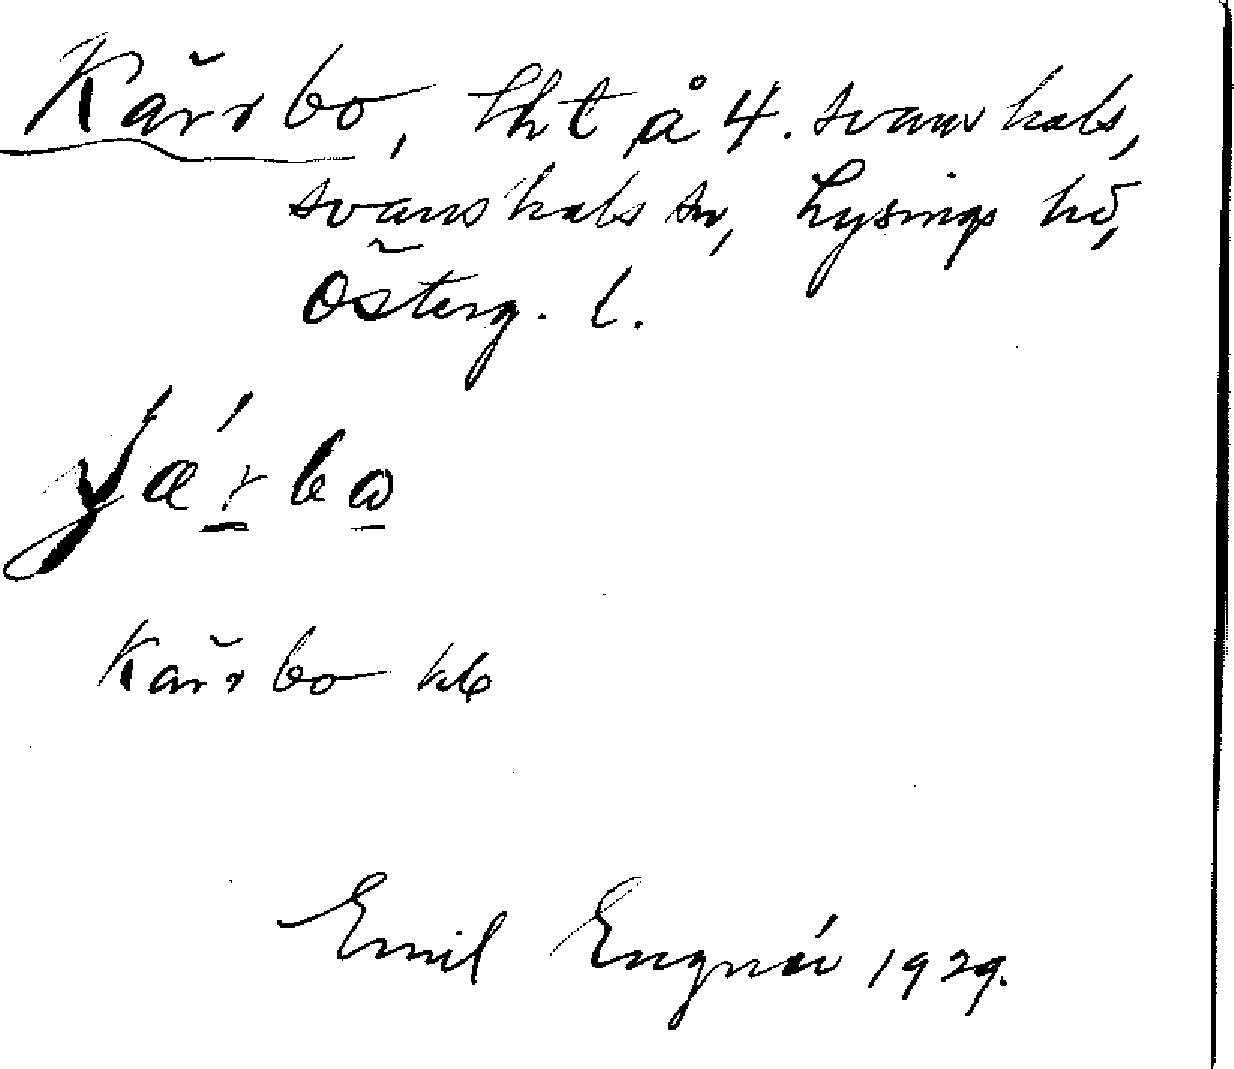 Kärrbo, lht å 4. Svanshals,
Svanshals sn, Lysings hd,
Österg. l.
Kärrbo
Emil Engnér 1929.